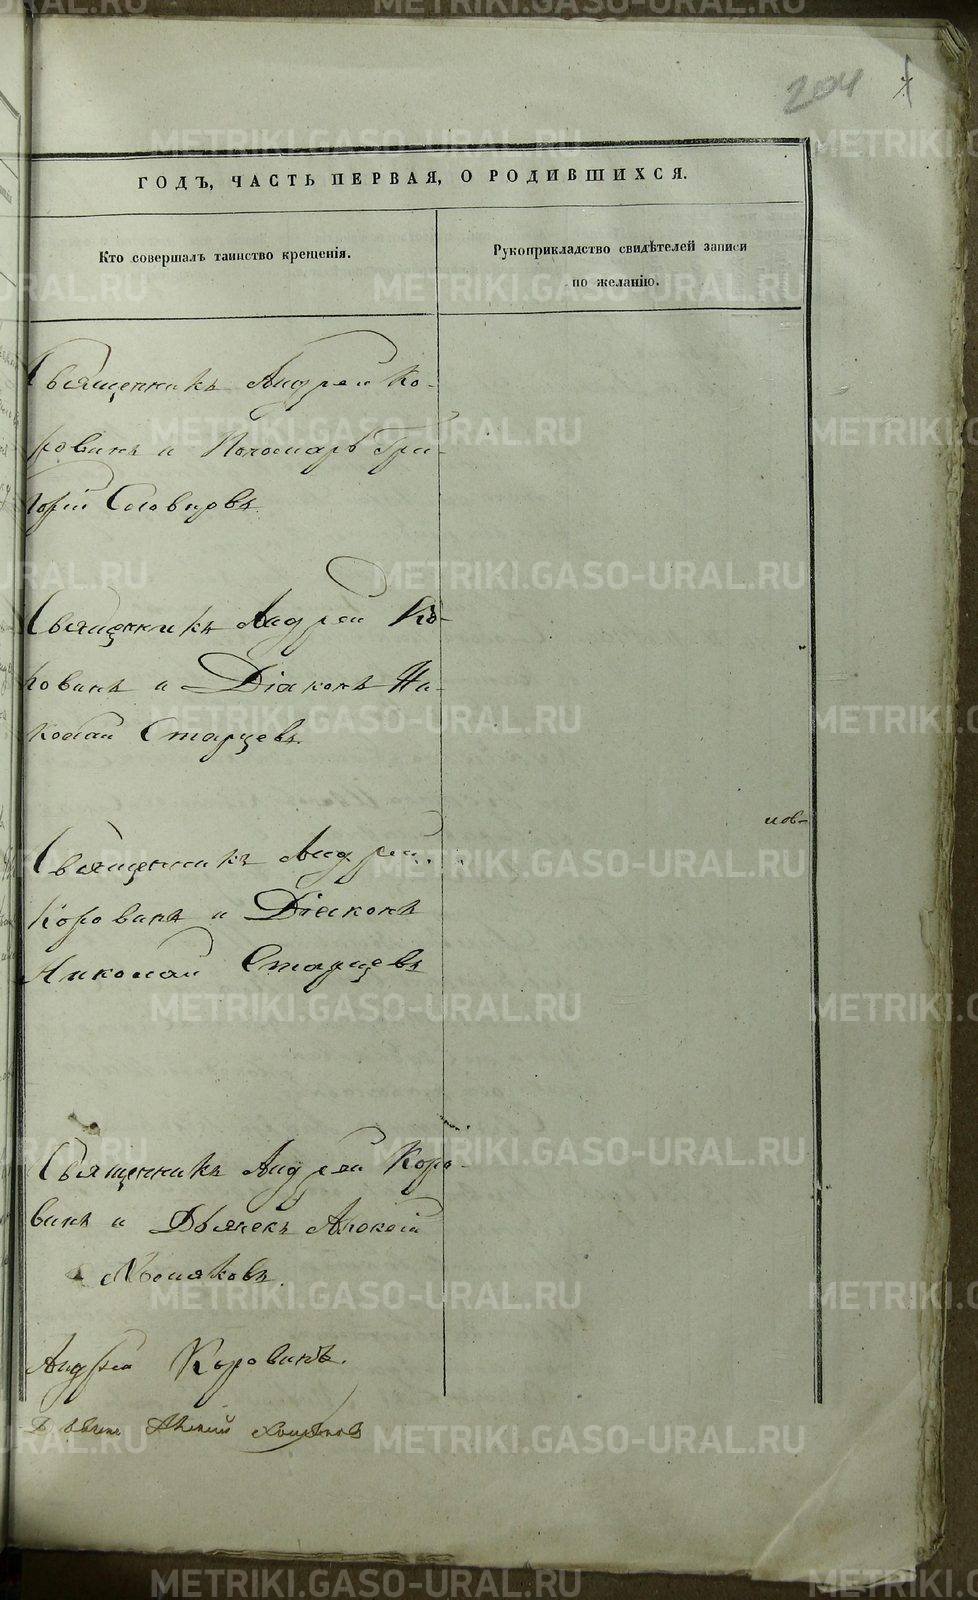 204
ГОДЪ, ЧАСТЬ ПЕРВАЯ, О РОДИВШИХСЯ.
Кто совершалъ таинство крещенія.
Рукоприкладство свидѣтелей записи
по желанію.
Священникъ Андрей Ко-
ровинъ и Пономарь Гри-
горій Словцовъ.
Священникъ Андрей Ко-
ровинъ и Діаконъ Ни-
колай Старцевъ.
Священникъ Андрей
Коровинъ и Діаконъ
Николай Старцевъ
Священникъ Андрей Коро-
винъ и Дьячекъ
Андрей Коровинъ.
METRIKI.GASO-URAL.RU